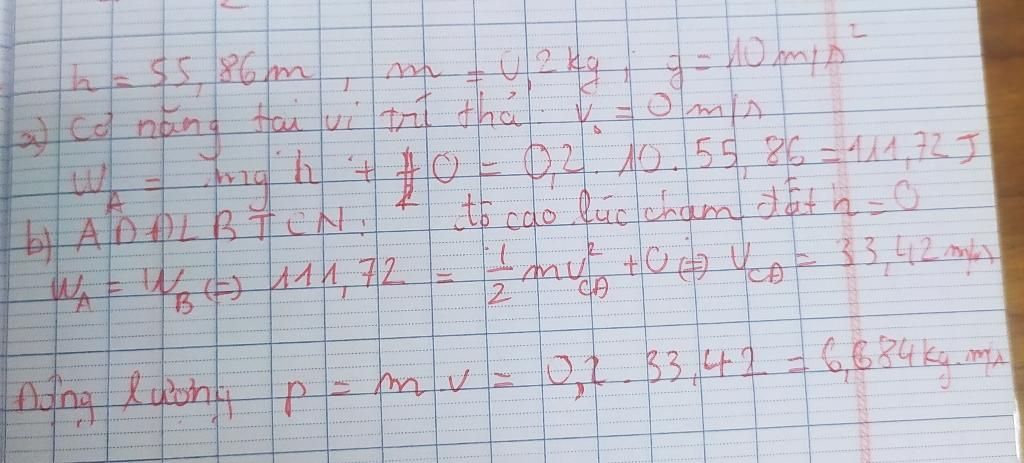 h = 55,86m , m = 0,2kg, g = 10 m/s²
a) Cơ năng tại vị trí thả v = 0 m/s
W_A = mgh + 0 = 0,2. 10. 55,86 = 111,72 J
b) ADĐLBTCN: tđ cao lúc chạm đất h = 0
W_A = W_B (=) 111,72 = 1/2 mv²_CĐ + 0 (=) v_CĐ = 33,42 m/s
Động lượng p = m v = 0,2. 33,42 = 6,684 kg.m/s